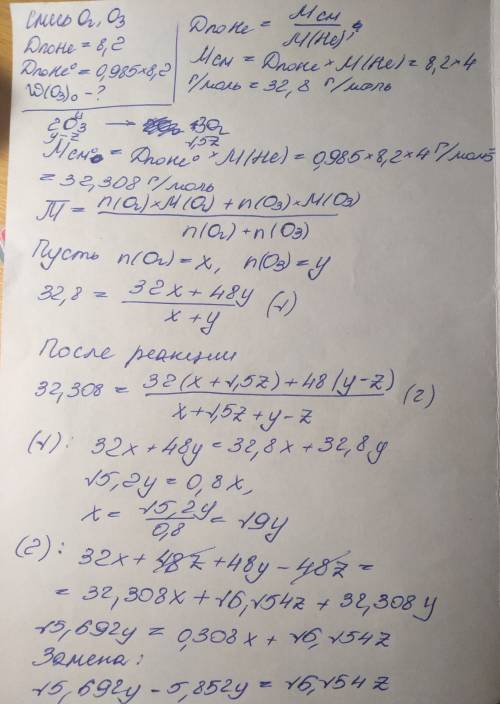 Смесь O₂, O₃
DпоHe = 8,2
Dпоне° = 0,985×8,2
W(O₃)₀ - ?
Dпоне = Mсм / M(He),
Mсм = Dпоне × M(He) = 8,2 × 4
г/моль = 32,8 г/моль
2O₃ → 3O₂
y-z 1,5z
Mсм° = Dпоне° × M(He) = 0,985×8,2×4 г/моль
= 32,308 г/моль
M̅ = n(O₂)×M(O₂) + n(O₃)×M(O₃) / n(O₂) + n(O₃)
Пусть n(O₂) = x, n(O₃) = y
32,8 = 32x + 48y / x + y (1)
После реакции
32,308 = 32(x + 1,5z) + 48(y - z) / x + 1,5z + y - z (2)
(1): 32x + 48y = 32,8x + 32,8y
15,2y = 0,8x,
x = 15,2y / 0,8 = 19y
(2): 32x + 48z + 48y - 48z =
= 32,308x + 16,154z + 32,308y
15,692y = 0,308x + 16,154z
Замена:
15,692y - 5,852y = 16,154z